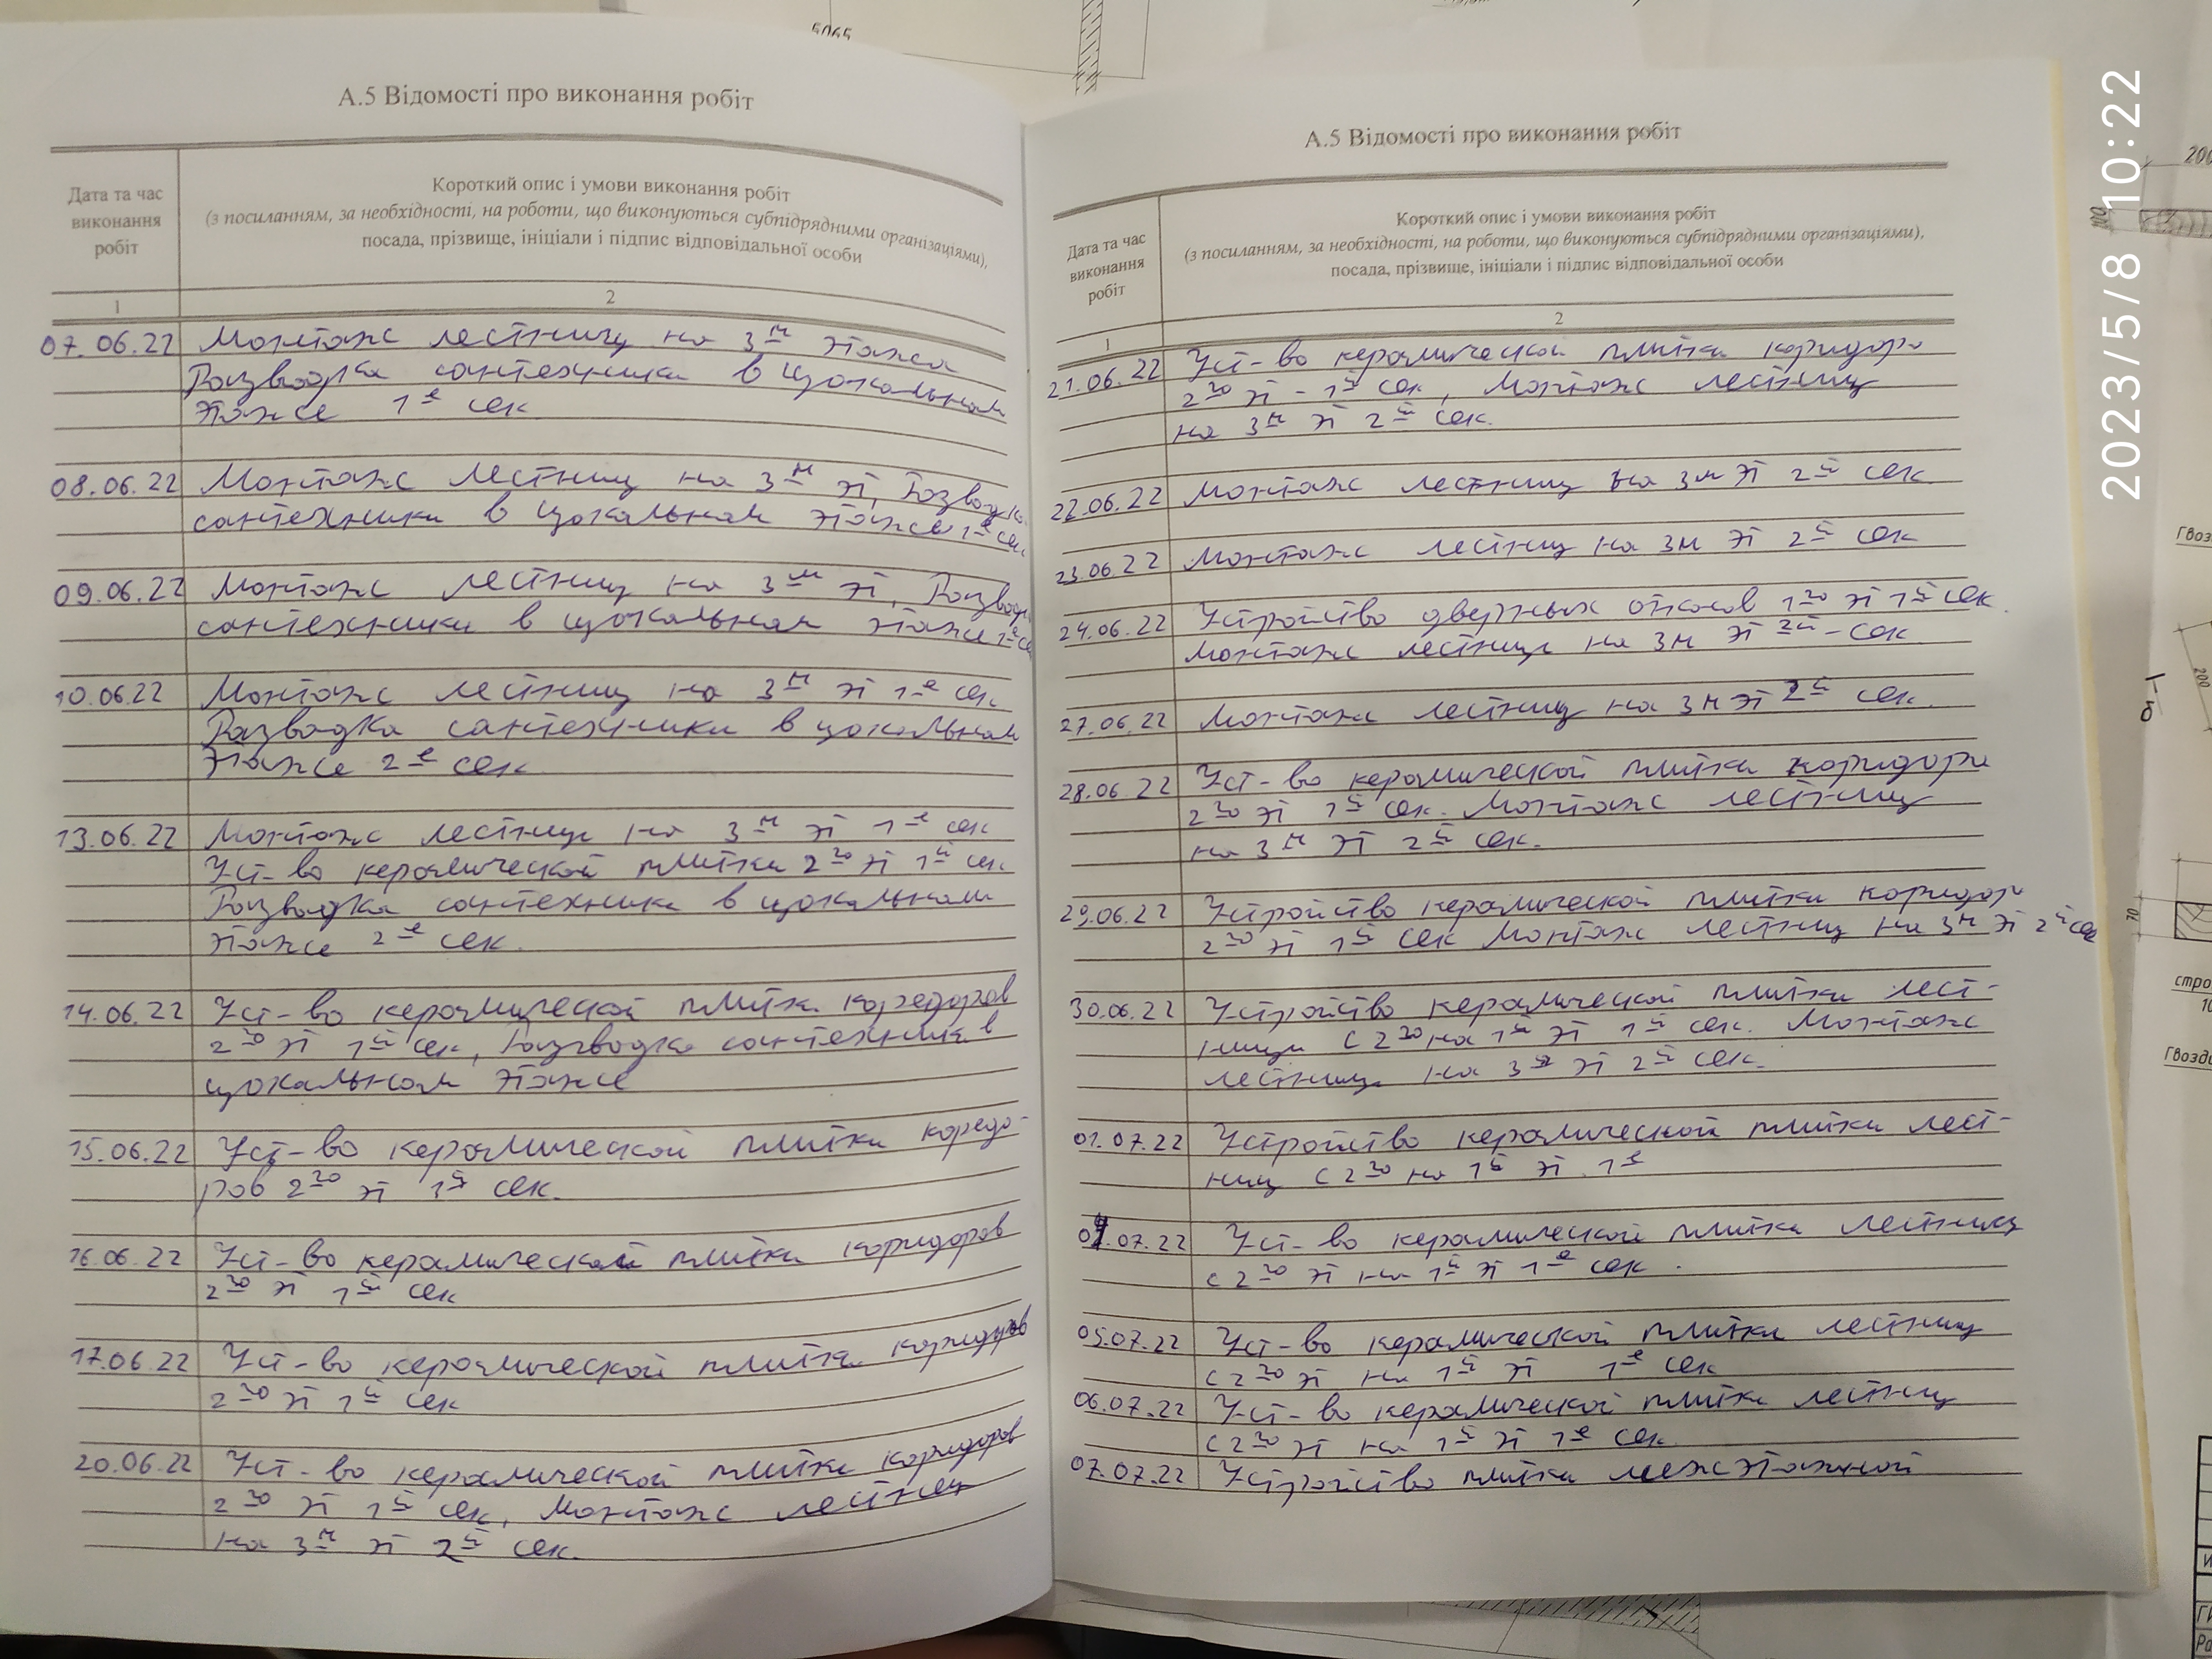 5065
А.5 Відомості про виконання робіт
Дата та час
виконання
робіт
Короткий опис і умови виконання робіт
(з посиланням, за необхідності, на роботи, що виконуються субпідрядними організаціями),
посада, прізвище, ініціали і підпис відповідальної особи
1 2
07.06.22 Монтаж лестниц на 3м этаже
Разводка сантехники в цокольном
этаже 1е сек
08.06.22 Монтаж лестниц на 3м эт, Разводка
сантехники в цокольном этаже 1е сек
09.06.22 Монтаж лестниц на 3м эт,
сантехники в цокольном этаже
10.06.22 Монтаж лестниц на 3м эт 1е сек
Разводка сантехники в цокольном
этаже 2е сек
13.06.22 Монтаж лестниц на 3м эт 1е сек
Уст-во керамической плитки 2го эт 1й сек
Разводка сантехники в цокольном
этаже 2е сек.
14.06.22 Уст-во керамической плитки коредоров
2го эт 1й сек, Разводка сантехники в
цокольном этаже
15.06.22 Уст-во керамической плитки коредо-
ров 2го эт 1й сек.
16.06.22 Уст-во керамической плитки коридоров
2го эт 1й сек
17.06.22 Уст-во керамической плитки коридоров
2го эт 1й сек
20.06.22 Уст-во керамической плитки коридоров
2го эт 1й сек, Монтаж лестниц
на 3м эт 2й сек.
А.5 Відомості про виконання робіт
Дата та час
виконання
робіт
Короткий опис і умови виконання робіт
(з посиланням, за необхідності, на роботи, що виконуються субпідрядними організаціями),
посада, прізвище, ініціали і підпис відповідальної особи
1 2
21.06.22 Уст-во керамической плитки коридора
2го эт - 1й сек, Монтаж лестниц
на 3м эт 2й сек.
22.06.22 Монтаж лестниц на 3м эт 2й сек.
23.06.22 Монтаж лестниц на 3м эт 2й сек
24.06.22 Устройство дверных откосов 1го эт 1й сек.
Монтаж лестниц на 3м эт 2й - сек.
27.06.22 Монтаж лестниц на 3м эт 2й сек.
28.06.22 Уст-во керамической плитки коридора
2го эт 1й сек. Монтаж лестниц
на 3м эт 2й сек.
29.06.22 Устройство керамической плитки коридор
2го эт 1й сек Монтаж лестниц на 3м эт 2й сек
30.06.22 Устройство керамической плитки лест-
ници с 2го на 1й эт 1й сек. Монтаж
лестниц на 3м эт 2й сек.
01.07.22 Устройство керамической плитки лест-
ниц с 2го на 1й эт. 1е
04.07.22 Уст-во керамической плитки лестниц
с 2го эт на 1й эт 1е сек.
05.07.22 Уст-во керамической плитки лестниц
с 2го эт на 1й эт 1е сек
06.07.22 Уст-во керамической плитки лестниц
с 2го эт на 1й эт 1е сек.
07.07.22 Устройство плитки межэтажной
2023/5/8 10:22
100
200
70
Гвозди